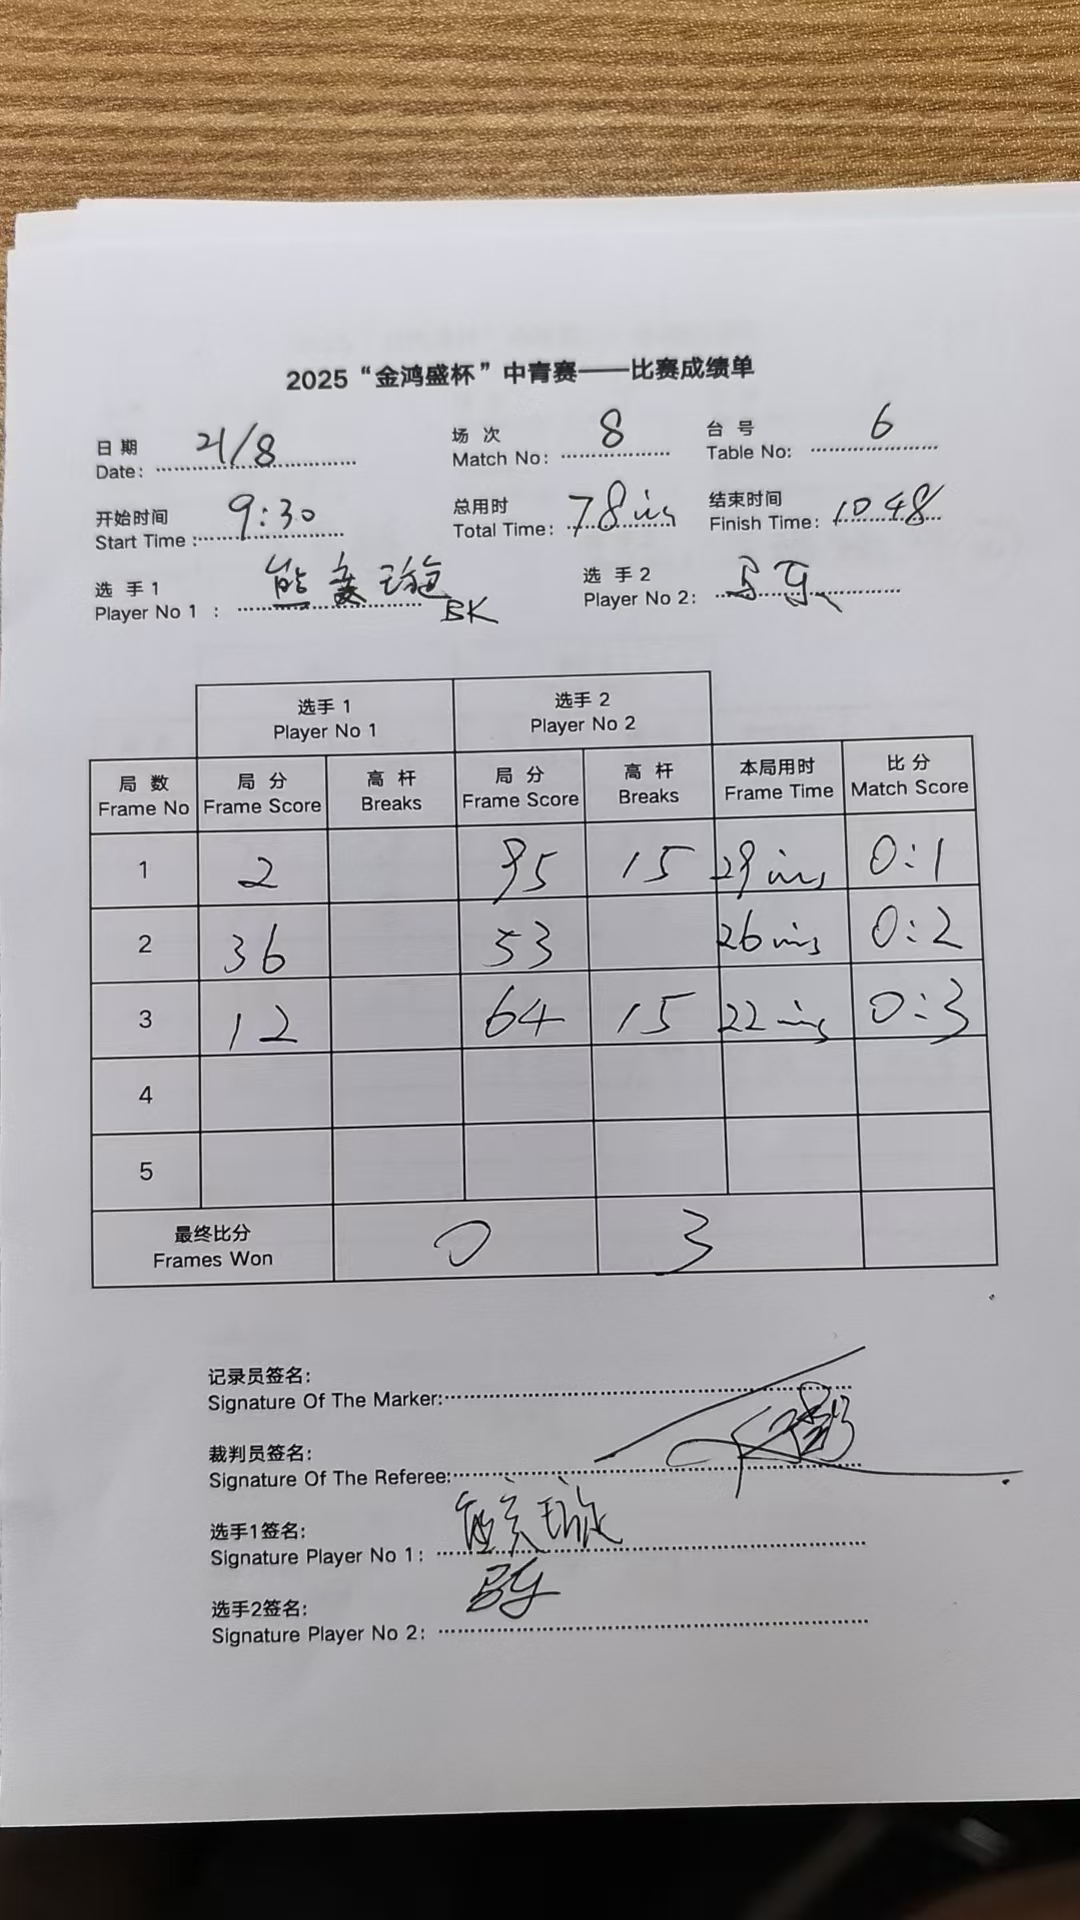 2025“金鸿盛杯”中青赛——比赛成绩单
日期 21/8 场次 8 台号 6
Date: Match No: Table No:
开始时间 9:30 总用时 78 ins 结束时间 1048
Start Time: Total Time: Finish Time:
选手1 熊 璇 选手2 马
Player No 1: BK Player No 2:
选手1 选手2
Player No 1 Player No 2
局数 局分 高杆 局分 高杆 本局用时 比分
Frame No Frame Score Breaks Frame Score Breaks Frame Time Match Score
1 2 95 15 29 ins 0:1
2 36 53 26 ins 0:2
3 12 64 15 22 ins 0:3
4
5
最终比分 0 3
Frames Won
记录员签名:
Signature Of The Marker:
裁判员签名:
Signature Of The Referee:
选手1签名: 熊 璇
Signature Player No 1:
选手2签名: 马
Signature Player No 2: